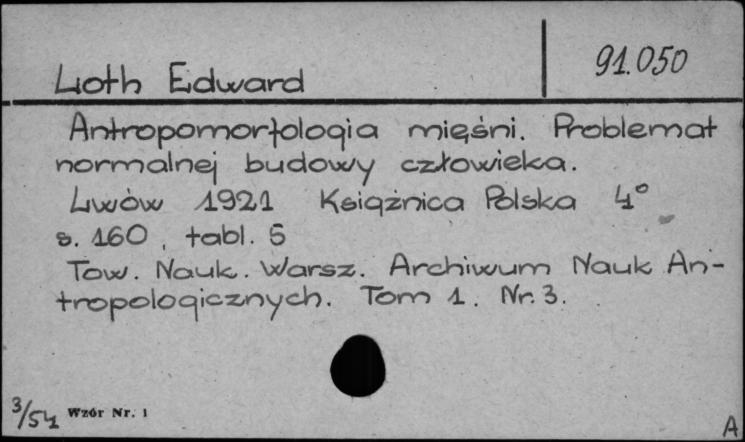 Loth Edward
91.050
Antropomorfologia mięśni. Problemat
normalnej budowy człowieka.
Lwów 1921 Książnica Polska 4°
s. 160, tabl. 5
Tow. Nauk. Warsz. Archiwum Nauk An-
tropologicznych. Tom 1. Nr. 3.
3/54
Wzór Nr. 1
A